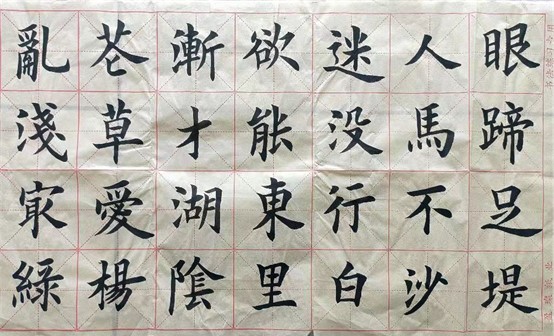 亂花漸欲迷人眼
淺草才能没馬蹄
㝡愛湖東行不足
綠楊陰里白沙堤